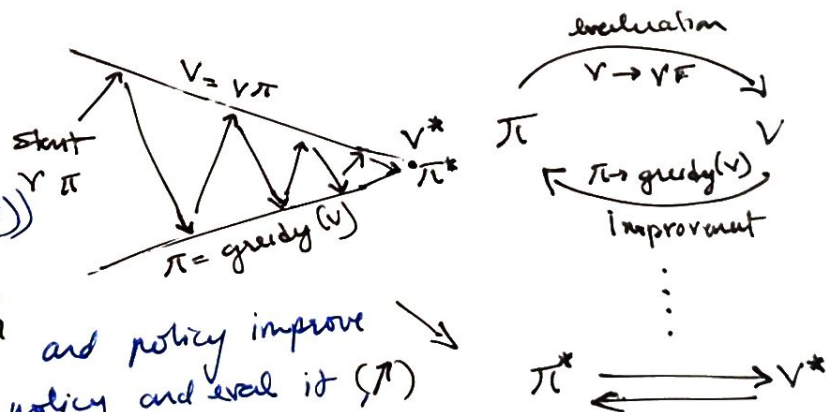 V = vπ
start
v π
V*
π*
π = greedy(v)
evaluation
v → vπ
π
V
π → greedy(v)
improvement
and policy improve
policy and eval it (↗)
π* V*